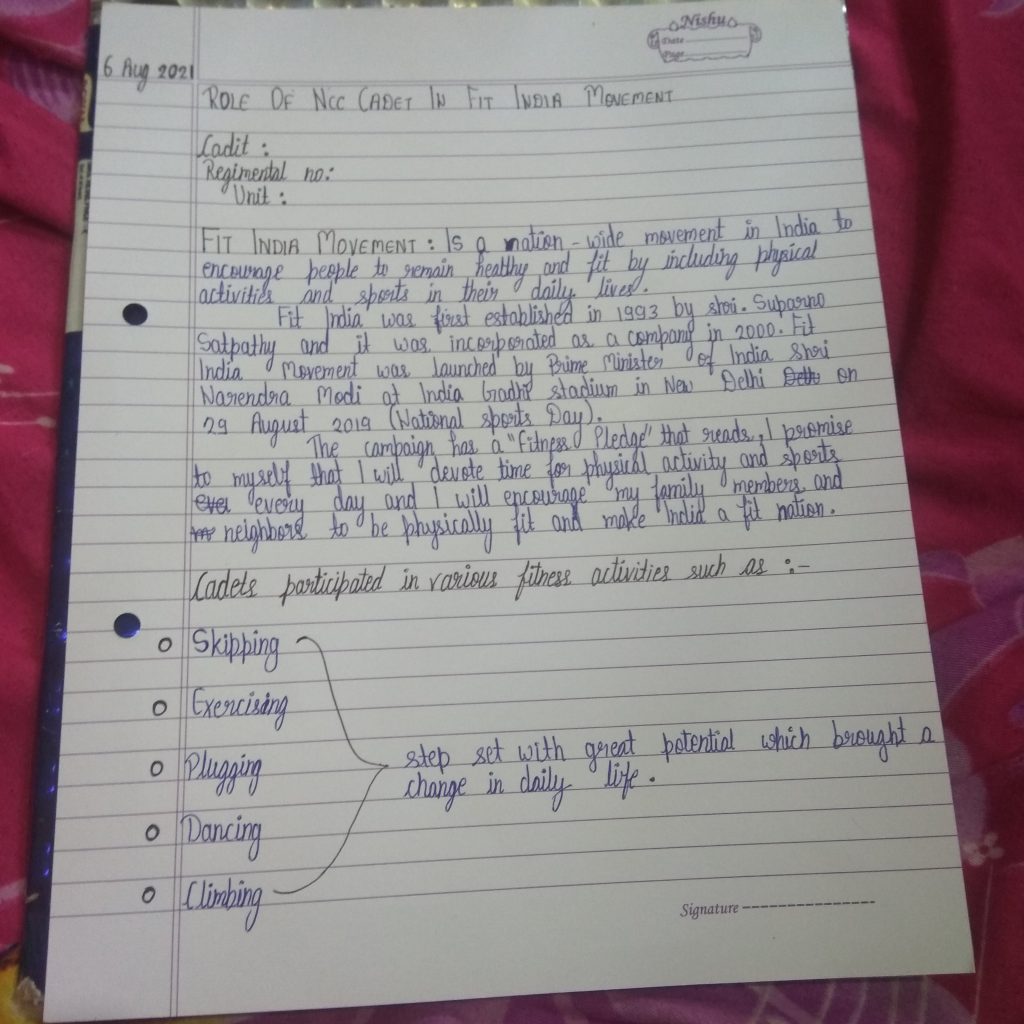 Nishu
Date
Page
6 Aug 2021
ROLE OF NCC CADET IN FIT INDIA MOVEMENT
Cadit :
Regimental no:
Unit :
FIT INDIA MOVEMENT : Is a nation - wide movement in India to
encourage people to remain healthy and fit by including physical
activities and sports in their daily lives.
Fit India was first established in 1993 by shri. Suparno
Satpathy and it was incorporated as a company in 2000. Fit
India Movement was launched by Prime Minister of India Shri
Narendra Modi at India Gadhi stadium in New Delhi on
29 August 2019 (National sports Day).
The campaign has a "Fitness Pledge" that reads, I promise
to myself that I will devote time for physical activity and sports
every day and I will encourage my family members and
neighbors to be physically fit and make India a fit nation.
Cadets participated in various fitness activities such as :-
Skipping
Exercising
Plugging
step set with great potential which brought a
change in daily life.
Dancing
Climbing
Signature ---------------